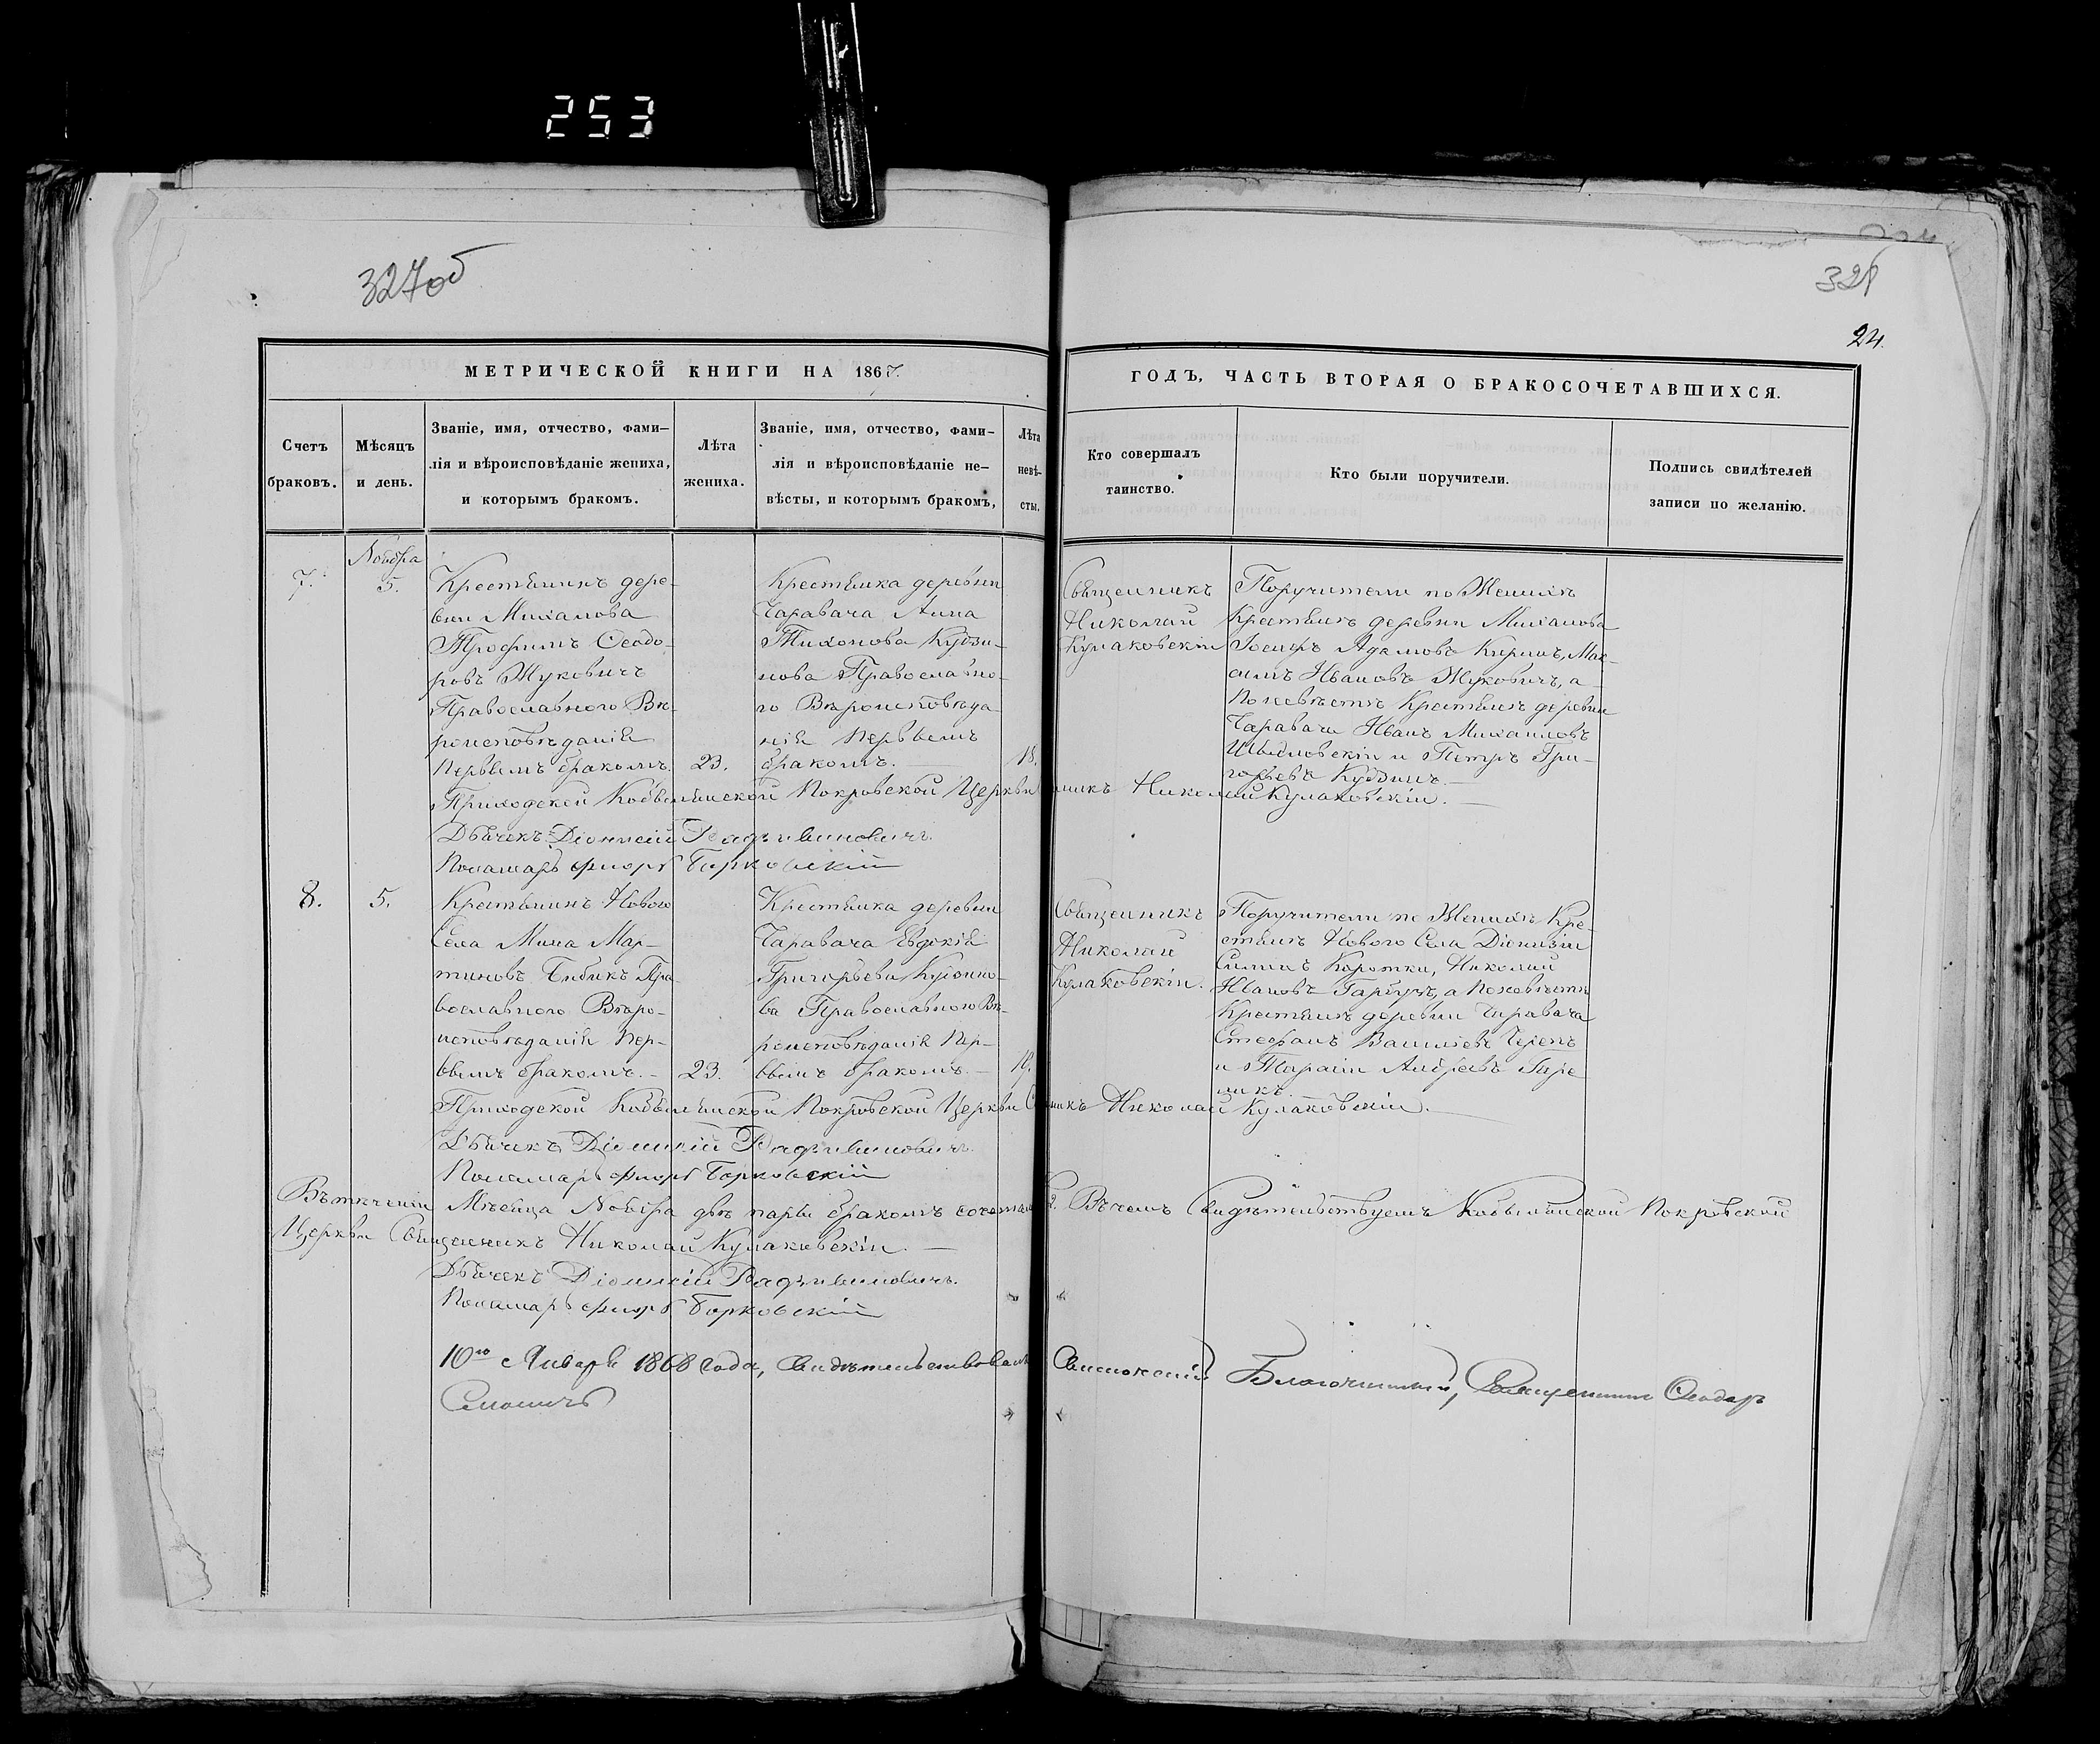 253
327об
328
24.
МЕТРИЧЕСКОЙ КНИГИ НА 1867.
ГОДЪ, ЧАСТЬ ВТОРАЯ О БРАКОСОЧЕТАВШИХСЯ.
Счетъ
браковъ.
Мѣсяцъ
и день.
Званіе, имя, отчество, фами-
лія и вѣроисповѣданіе жениха,
и которымъ бракомъ.
Лѣта
жениха.
Званіе, имя, отчество, фами-
лія и вѣроисповѣданіе не-
вѣсты, и которымъ бракомъ,
Лѣта
невѣ-
сты.
Кто совершалъ
таинство.
Кто были поручители.
Подпись свидѣтелей
записи по желанію.
7.
Ноября
5.
Крестьянинъ дере-
вни Миханова
Трофимъ Ѳеодо-
ровъ Жуковичъ
Православнаго Вѣ-
роисповѣданія
Первымъ бракомъ.
23.
Крестьянка деревни
Чаравача Анна
Тихонова Кудзи-
нова Православно-
го Вѣроисповѣда-
нія Первымъ
бракомъ.
18.
Священникъ
Николай
Кулаковскій
Поручители по Женихѣ
Крестьянъ деревни Миханова
Іосифъ Адамовъ Кирикъ, Мак-
симъ Ивановъ Жуковичъ, а
По невѣстѣ Крестьянъ деревни
Чаравачи Иванъ Михаиловъ
и Петръ Гри-
горьевъ Кудзинъ.
Приходской Кобыльнской Покровской Церкви
никъ Николай Кулаковскій.
Дьячекъ Діонисій Радзивиновичъ.
Пономарь Флоръ Борковскій
8.
5.
Крестьянинъ Нового
Села Мина Мар-
тиновъ Бибикъ Пра-
вославного Вѣро-
исповѣданія Пер-
вымъ бракомъ.
23.
Крестьянка деревни
Чаравача Евдокія
Григорьева Кудзино-
ва Православного Вѣ-
роисповѣданія Пер-
вымъ бракомъ.
19.
Священникъ
Николай
Кулаковскій.
Поручители по Женихѣ Кре-
стьянъ Нового Села Діонизіи
Коротки, Николай
Ивановъ Гарбузъ, а По невѣстѣ
Крестьянъ деревни Чаравача
Стефанъ Василіевъ
и Тарасіи Андреевъ
Приходской Кобыльнской Покровской Церкви
никъ Николай Кулаковскій.
Дьячекъ Діонисій Радзивиновичъ.
Пономарь Флоръ Борковскій
Въ теченіи Мѣсяца Ноября двѣ пары бракомъ сочетал
Въ чемъ Свидѣтельствуемъ Кобыльнской Покровской
Церкви Священникъ Николай Кулаковскій.
Дьячекъ Діонисій Радзивиновичъ.
Пономарь Флоръ Борковскій
10го Января 1868 года, Свидѣтельствовалъ
Благочинный, Священникъ Ѳеодоръ